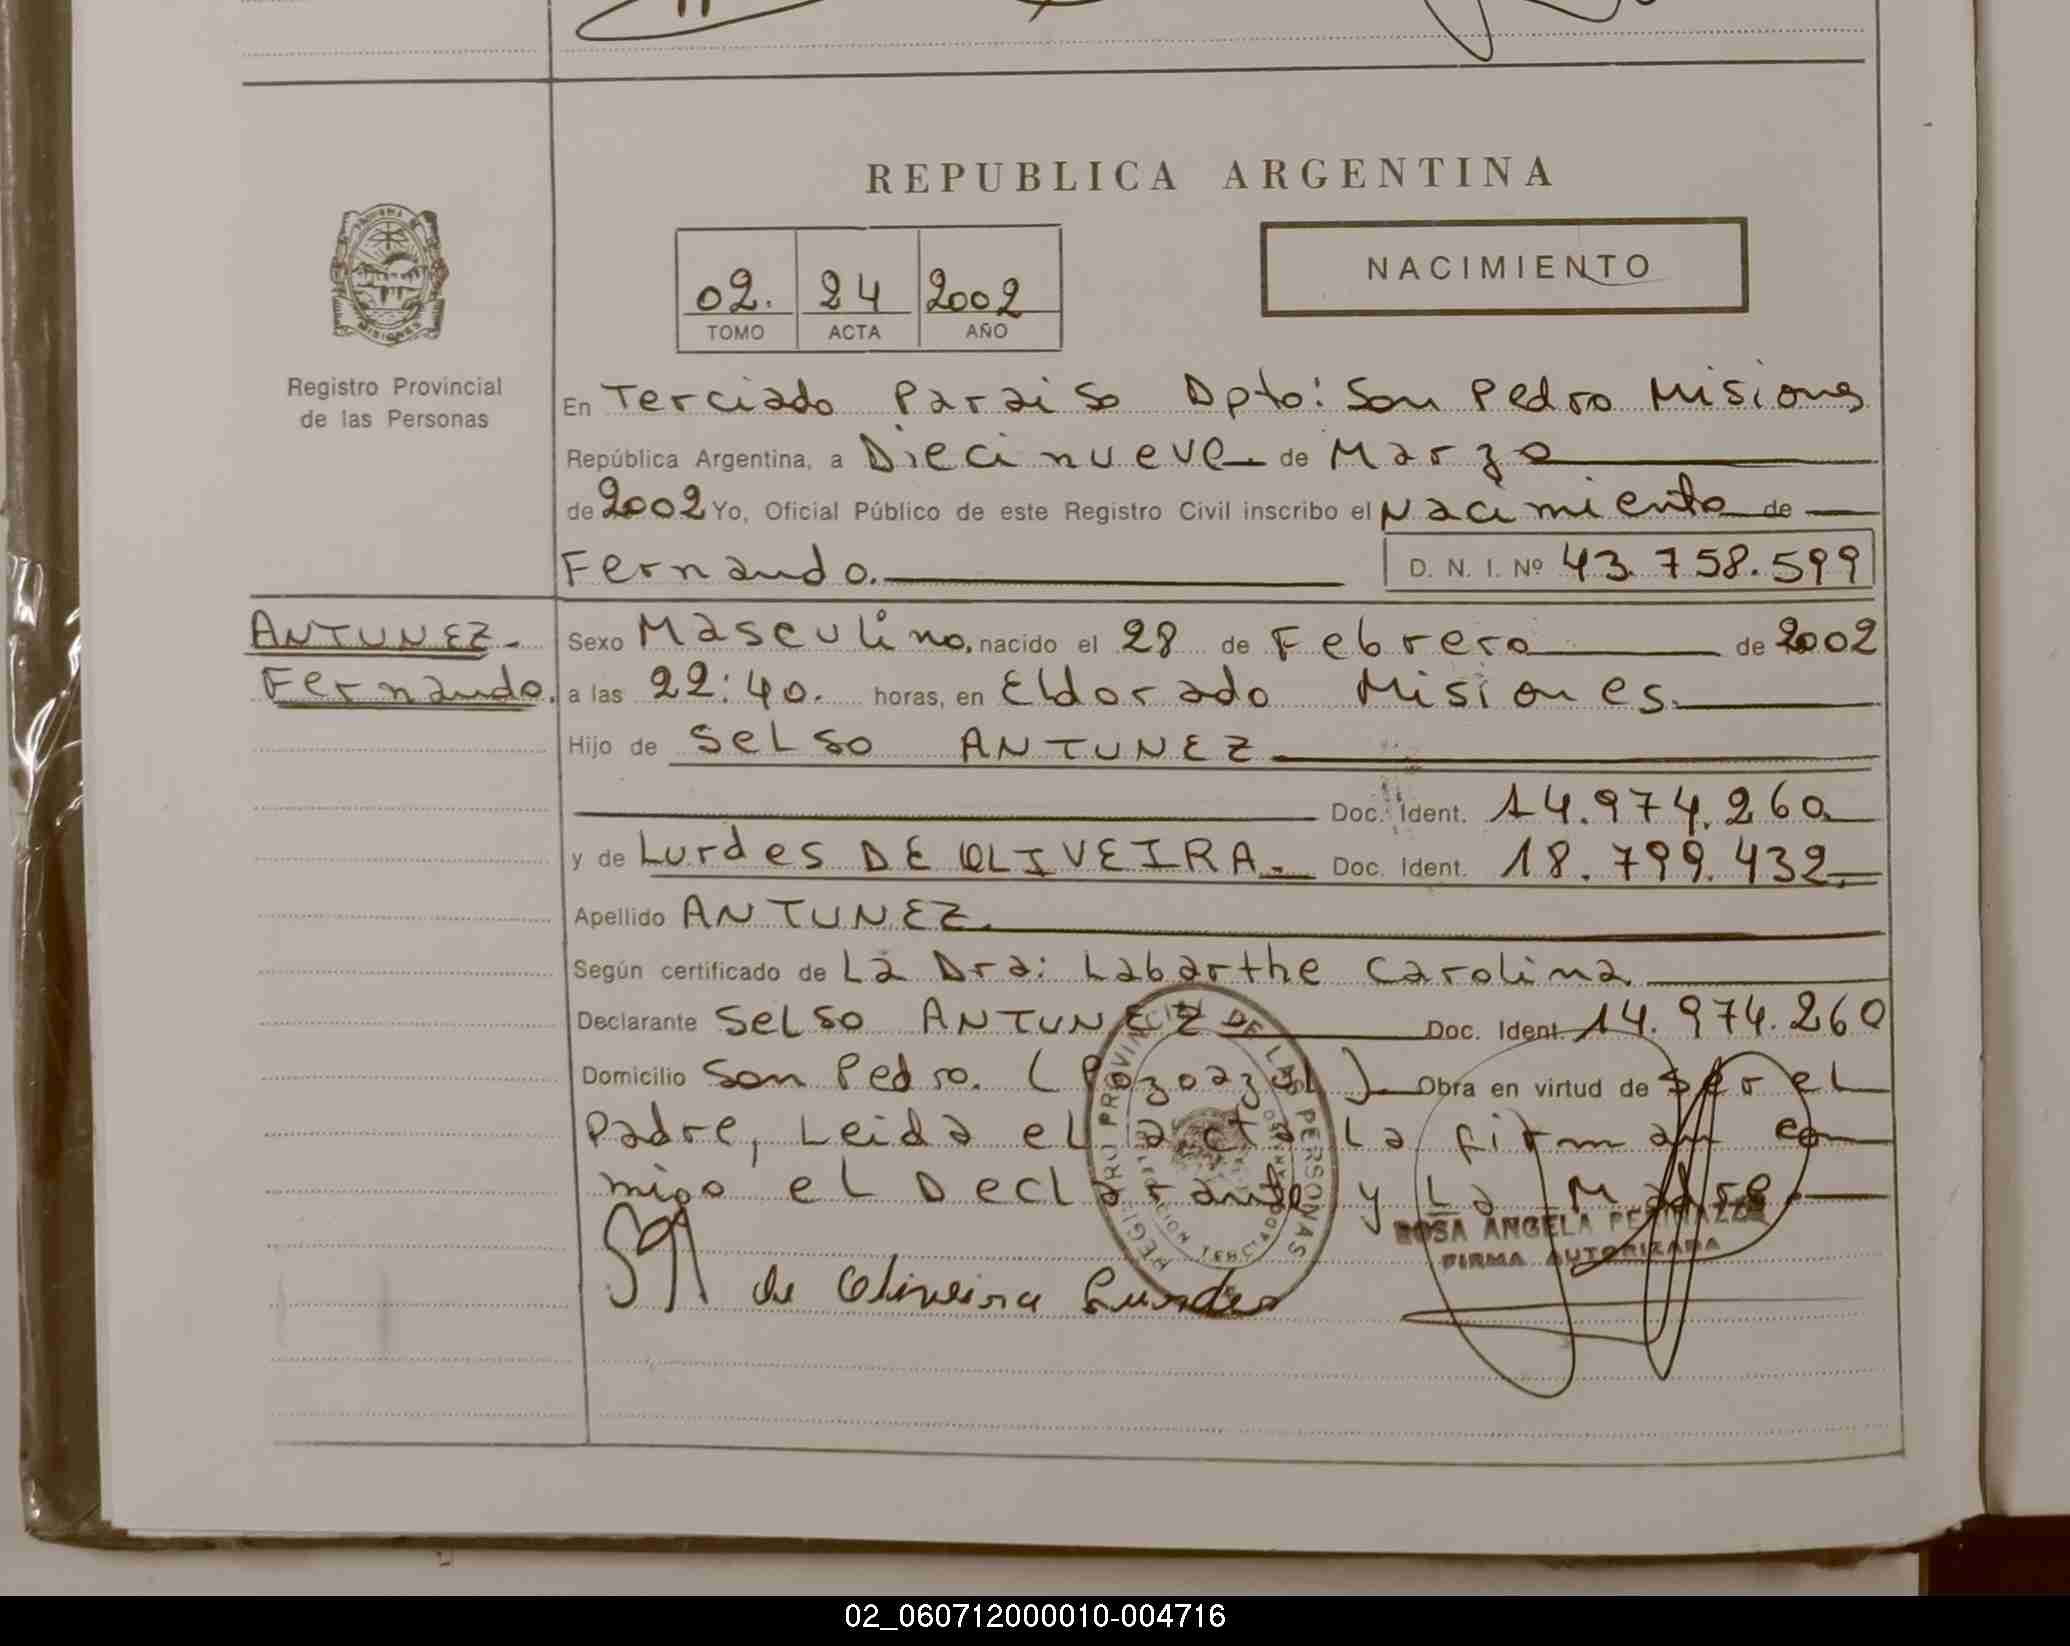 REPUBLICA ARGENTINA
NACIMIENTO
02. 24 2002
TOMO ACTA AÑO
MISIONES
Registro Provincial
de las Personas
En Terciado Paraiso Dpto: San Pedro Misiones
República Argentina, a Diecinueve de Marzo
de 2002 Yo, Oficial Público de este Registro Civil inscribo el Nacimiento de
Fernando. D. N. I. Nº 43.758.599
ANTUNEZ.
Fernando.
Sexo Masculino, nacido el 28 de Febrero de 2002
a las 22:40. horas, en Eldorado Misiones.
Hijo de Selso ANTUNEZ
Doc. Ident. 14.974.260
y de Lurdes DE OLIVEIRA. Doc. Ident. 18.799.432
Apellido ANTUNEZ.
Según certificado de La Dra: Labarthe Carolina
Declarante Selso ANTUNEZ Doc. Ident. 14.974.260
Domicilio San Pedro. (Pozoazul) Obra en virtud de Ser el
Padre, Leida el acta La firman con
migo el Declarante y La Madre.
REGISTRO PROVINCIAL DE LAS PERSONAS
ROSA ANGELA
FIRMA AUTORIZADA
de Oliveira Lurdes
02_060712000010-004716